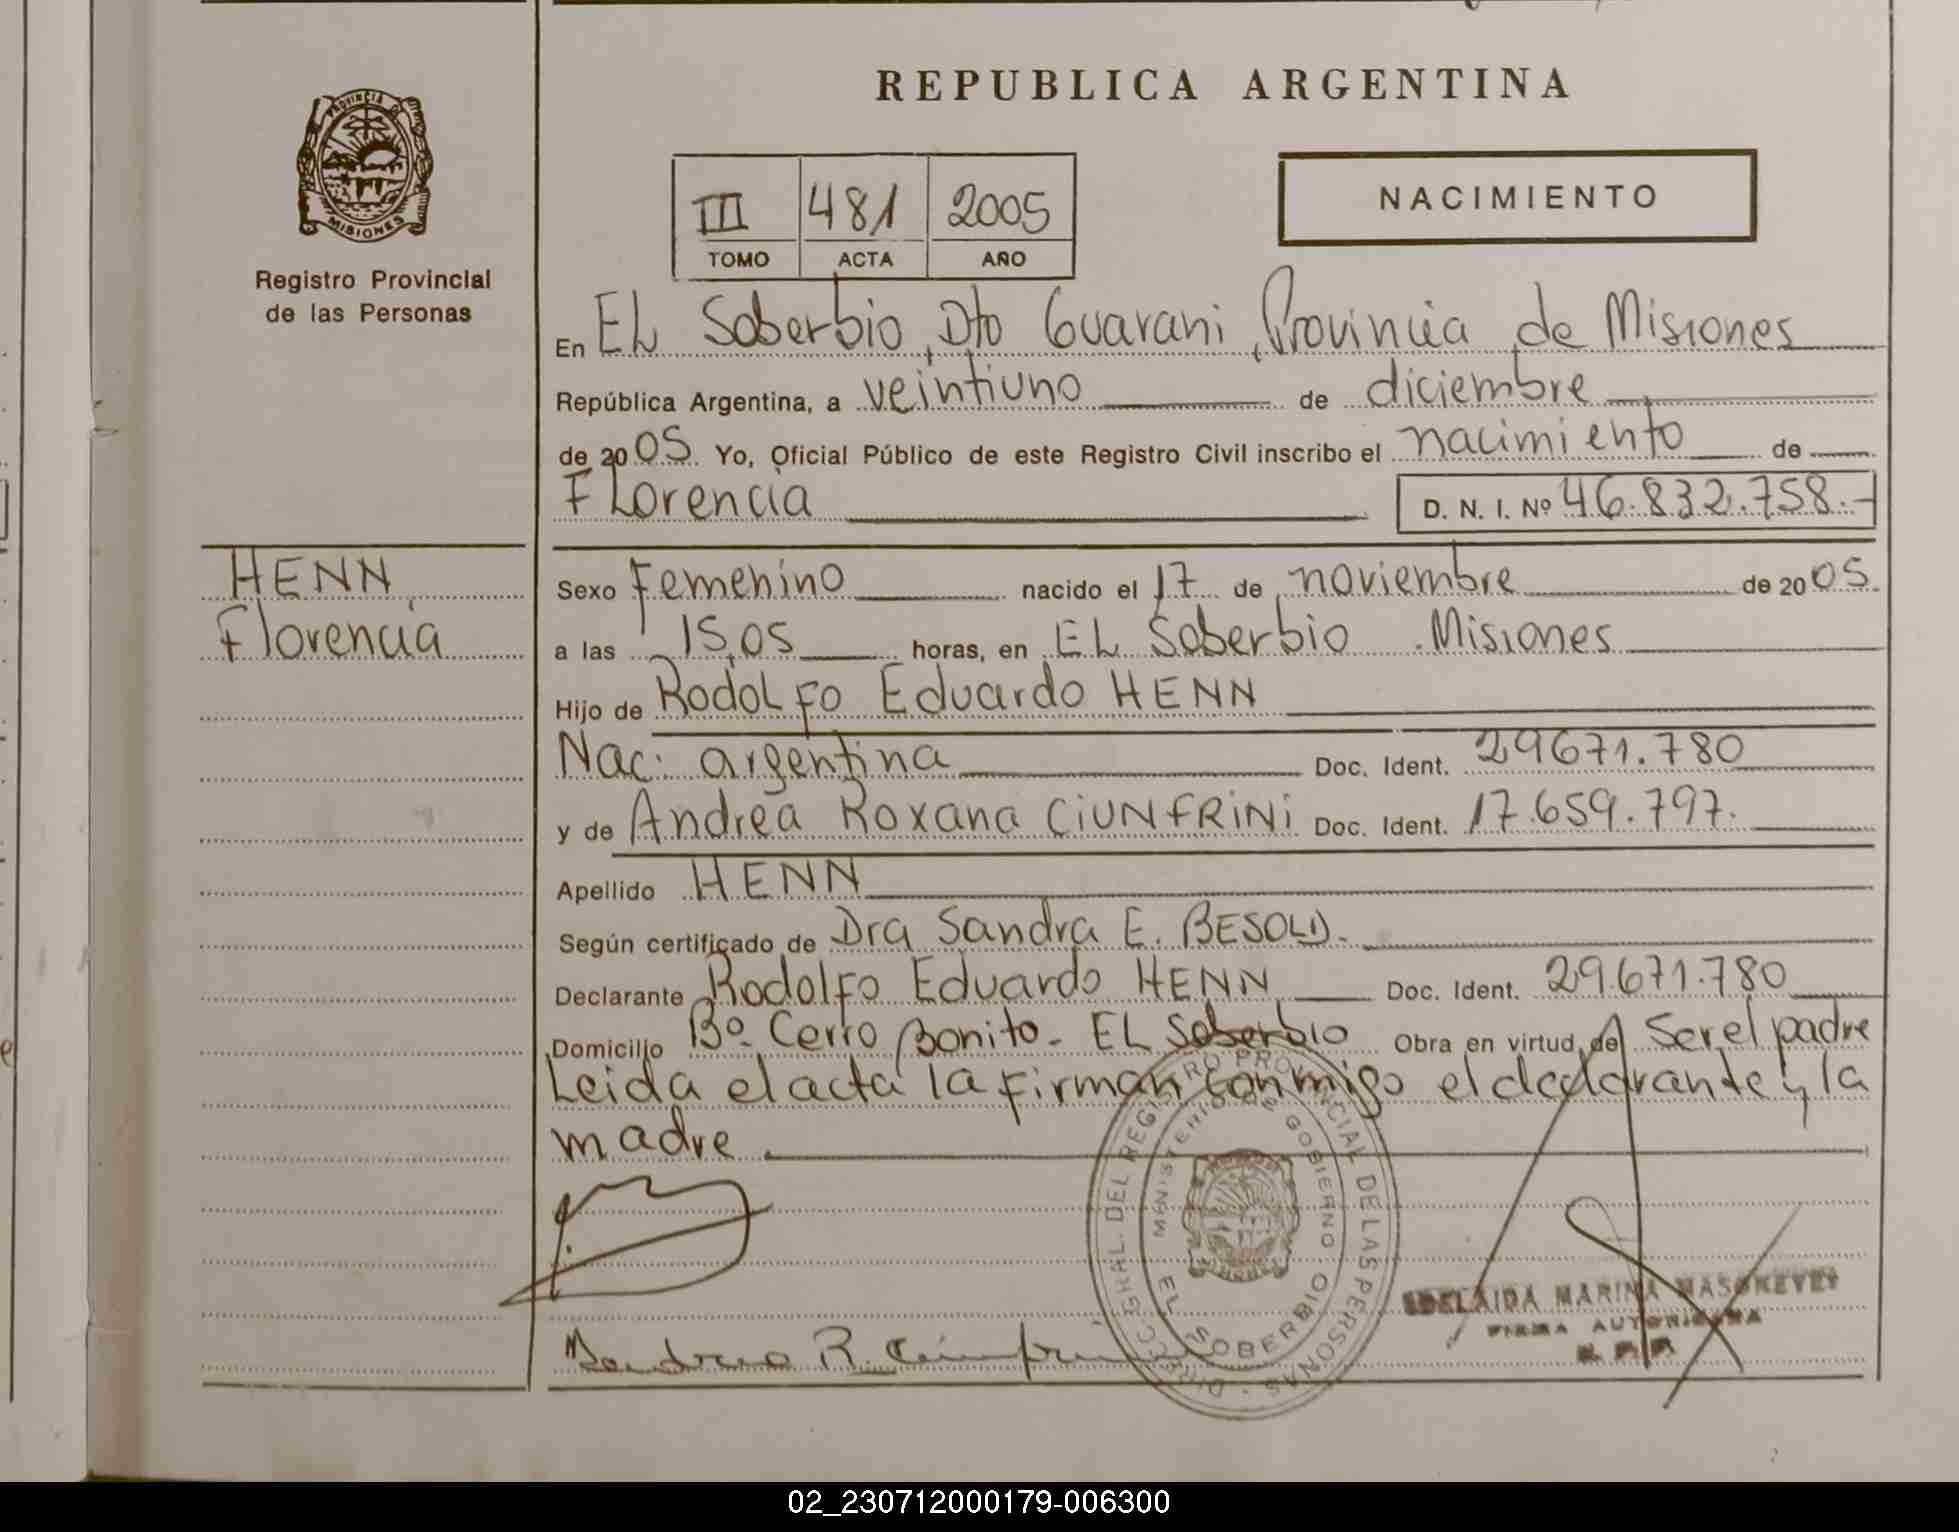 REPUBLICA ARGENTINA
PROVINCIA DE
MISIONES
Registro Provincial
de las Personas
III 481 2005
TOMO ACTA AÑO
NACIMIENTO
En EL Soberbio, Dto Guarani, Provincia de Misiones
República Argentina, a veintiuno de diciembre
de 2005 Yo, Oficial Público de este Registro Civil inscribo el nacimiento de
Florencia D. N. I. Nº 46.832.758.-
HENN,
Florencia
Sexo Femenino nacido el 17 de noviembre de 2005.
a las 15,05 horas, en EL Soberbio . Misiones
Hijo de Rodolfo Eduardo HENN
Nac: argentina Doc. Ident. 29671.780
y de Andrea Roxana CiUNFRiNi Doc. Ident. 17.659.797.
Apellido HENN
Según certificado de Dra Sandra E. BESOLD.
Declarante Rodolfo Eduardo HENN Doc. Ident. 29.671.780
Domicilio Bº Cerro Bonito - EL Soberbio Obra en virtud de Ser el padre
Leida el acta la firman conmigo el declarante y la
madre
DIRECC. GRAL. DEL REGISTRO PROVINCIAL DE LAS PERSONAS
MINISTERIO DE GOBIERNO
EL SOBERBIO
ADELAIDA MARINA
FIRMA AUTORIZADA
R. P. P.
02_230712000179-006300